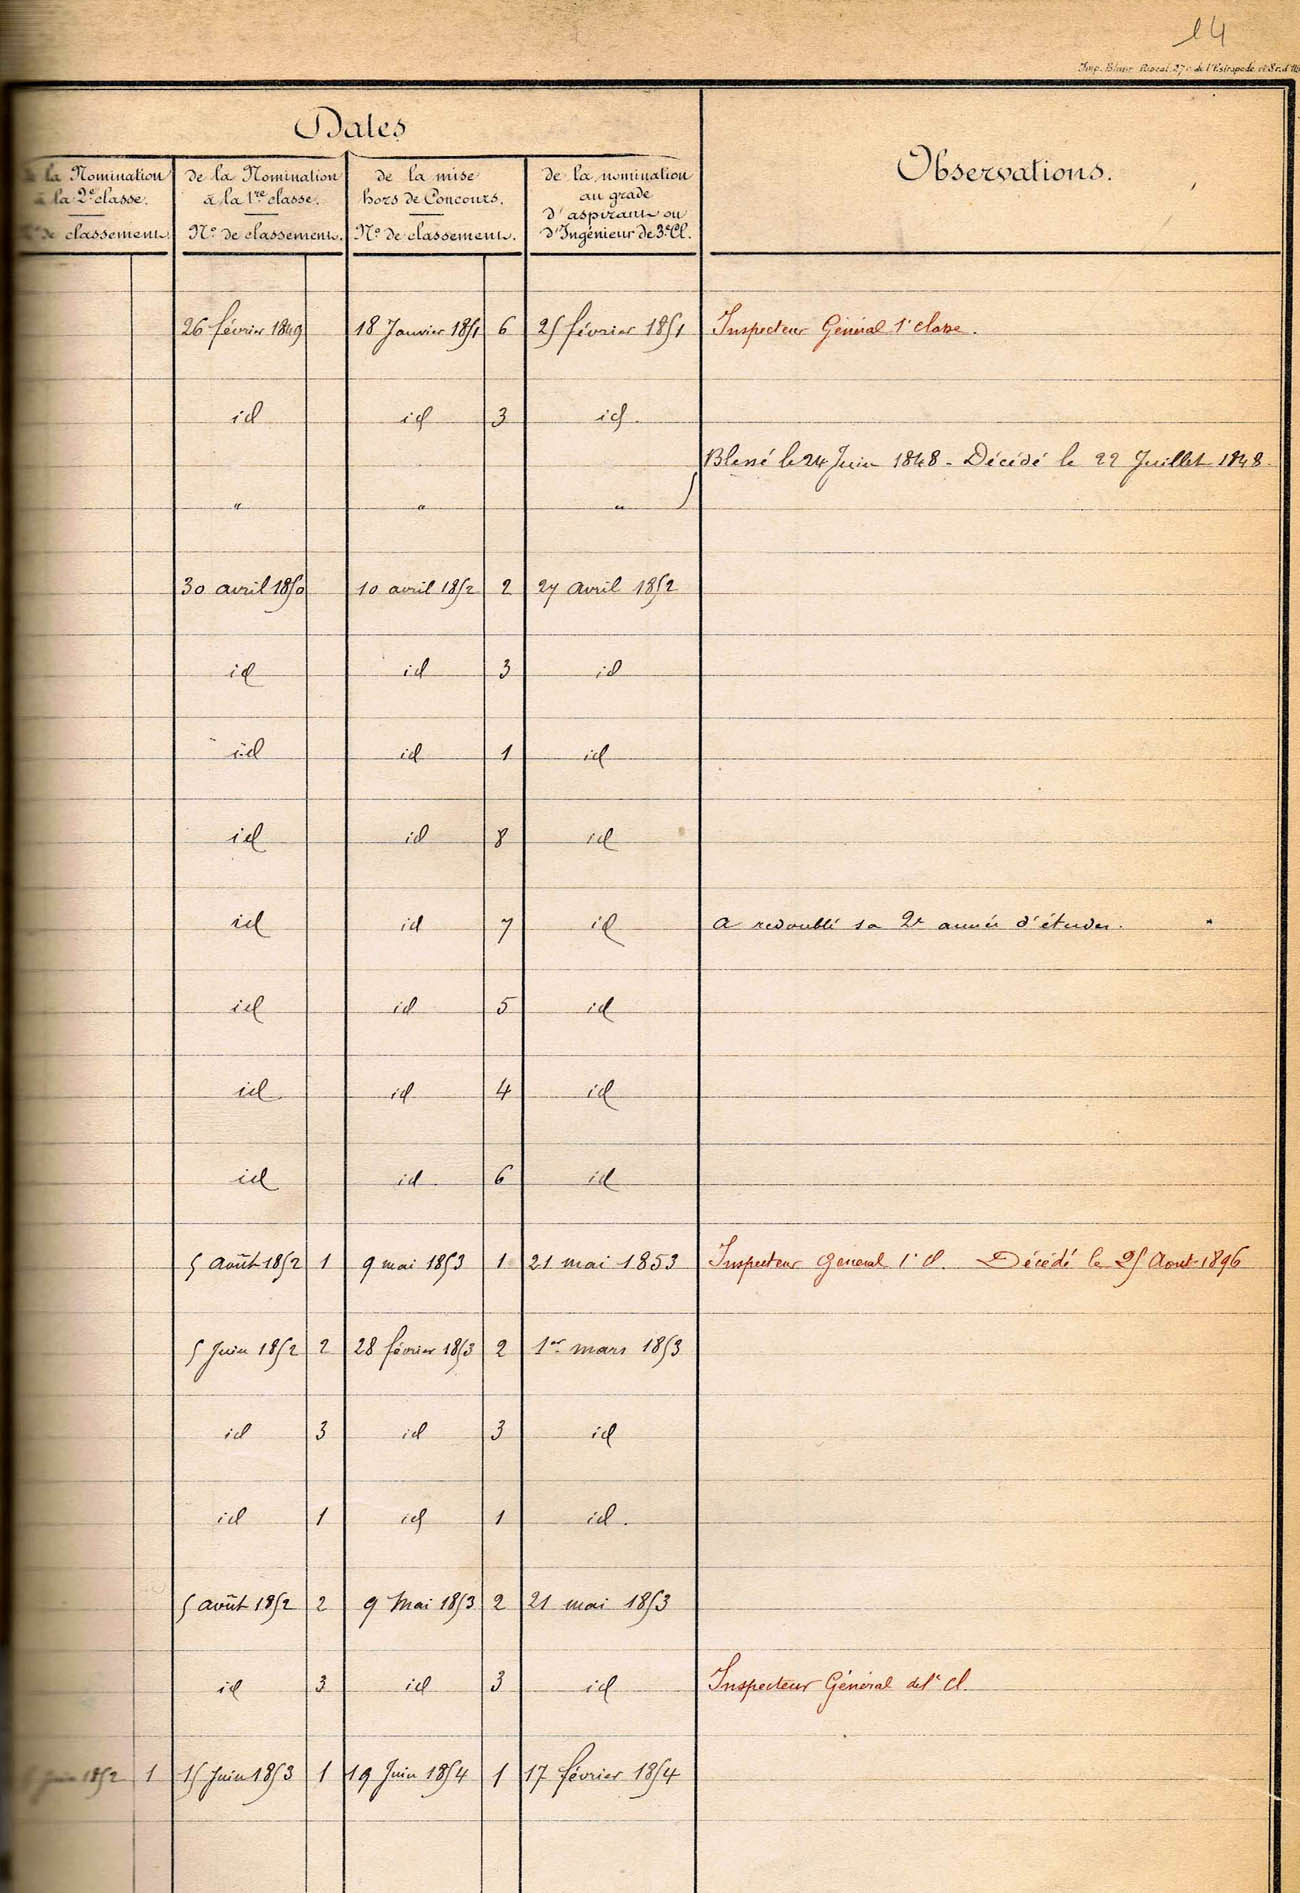 14
Imp. Blanc Pascal, 27 r. de l'Estrapade
Dates
Observations.
la Nomination de la Nomination de la mise de la nomination
à la 2e classe. à la 1re classe. hors de Concours. au grade
d'aspirant ou
N° de classement N° de classement. N° de classement. d'Ingénieur de 3e Cl.
26 février 1849 18 Janvier 1851 6 25 février 1851 Inspecteur Général 1e classe.
id id 3 id.
Blessé le 24 Juin 1848 - Décédé le 22 Juillet 1848.
" " "
30 avril 1850 10 avril 1852 2 27 avril 1852
id id 3 id
id id 1 id
id id 8 id
id id 7 id a redoublé sa 2e année d'études.
id id 5 id
id id 4 id
id id. 6 id
5 août 1852 1 9 mai 1853 1 21 mai 1853 Inspecteur général 1e cl. Décédé le 25 Aout 1896
5 Juin 1852 2 28 février 1853 2 1er mars 1853
id 3 id 3 id
id 1 id 1 id.
5 août 1852 2 9 Mai 1853 2 21 mai 1853
id 3 id 3 id Inspecteur Général de 1e cl.
Juin 1852 1 15 Juin 1853 1 19 Juin 1854 1 17 février 1854